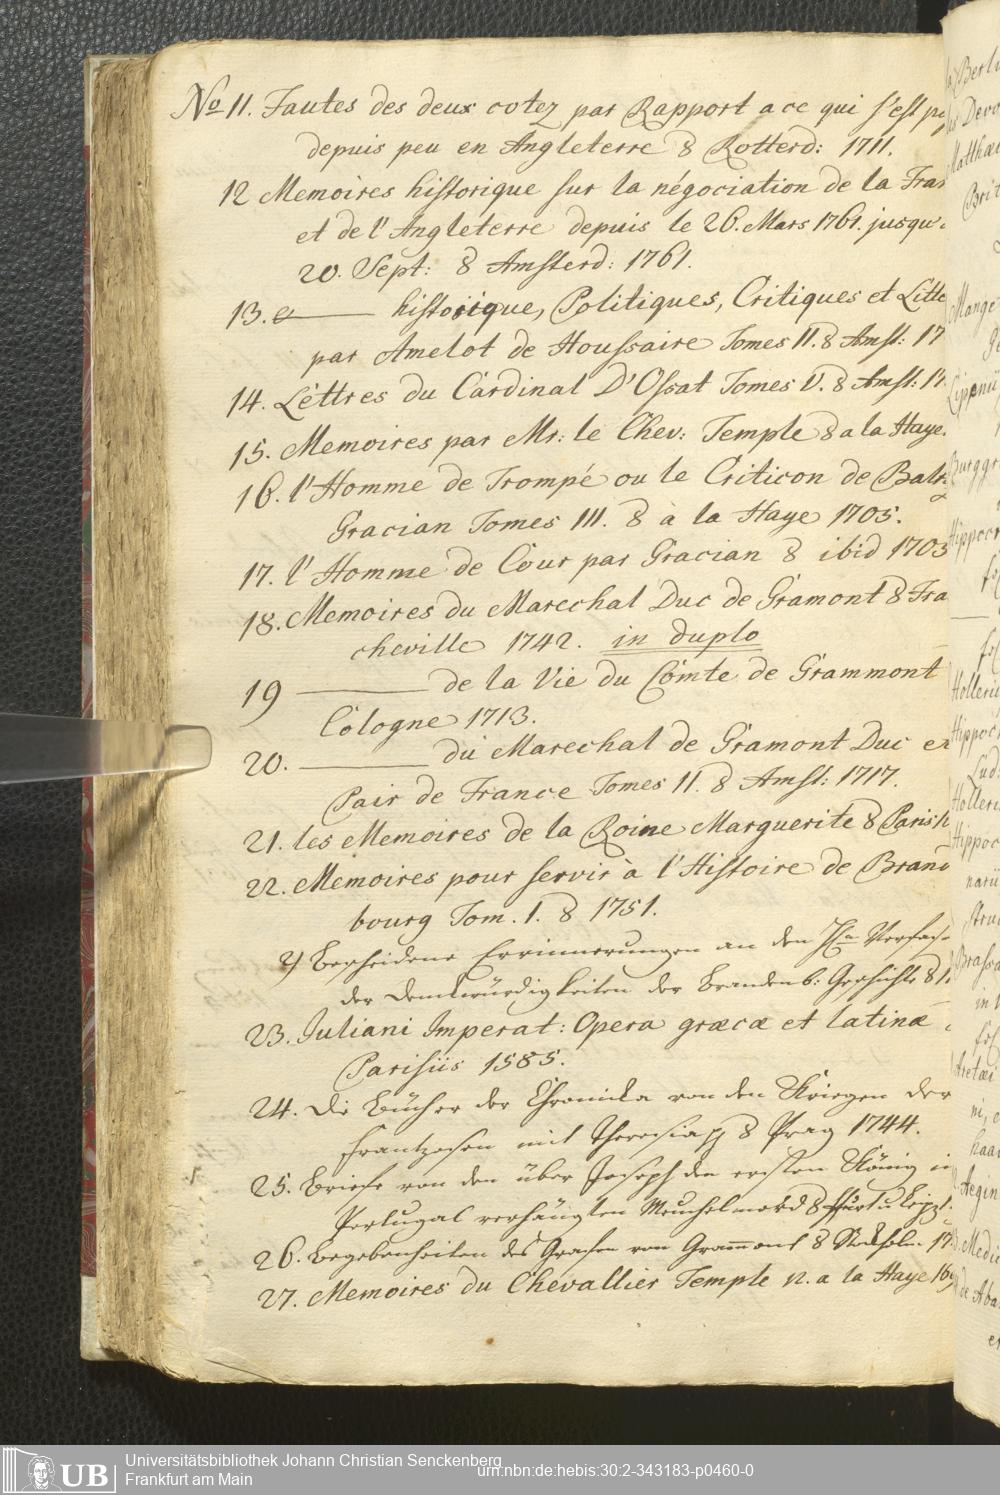 No 11. Fautes des deux cotez par Rapport a ce qui s'est
depuis peu en Angleterre 8 Rotterd: 1711.
12 Memoires historique sur la négociation de la Fran
et de l'Angleterre depuis le 26. Mars 1761. jusqu'
20. Sept: 8 Amsterd: 1761.
13. historique, Politiques, Critiques et Litte
par Amelot de Houssaire Tomes II. 8 Amst: 17
14. Lèttres du Cardinal D'Ossat Tomes V. 8 Amst: 17
15. Memoires par Mr: le Chev: Temple 8 a la Haye.
16. l'Homme de Trompé ou le Criticon de Balt
Gracian Tomes III. 8 à la Haye 1705.
17. l'Homme de Cour par Gracian 8 ibid 1703
18. Memoires du Marechal Duc de Gramont 8 Fra
cheville 1742. in duplo
19 de la Vie du Comte de Grammont
Cologne 1713.
20. du Marechal de Gramont Duc et
Pair de France Tomes II. 8 Amst: 1717.
21. les Memoires de la Roine Marguerite 8 Paris
22. Memoires pour servir à l'Histoire de Brand
bourg Tom. I. 8 1751.
2) Bescheidene Errinnerungen an den H. Verfas-
der Denkwürdigkeiten der Brandenb: Geschichte 8
23. Juliani Imperat: Opera græcæ et latinæ
Parisiis 1585.
24. Die Bücher der Chronicka von den Kriegen der
Frantzosen mit Theresia 8 Prag 1744.
25. Briefe von den über Joseph den ersten König in
Portugal verhängten Meuchelmord 8 Leipz
26. Begebenheiten des Grafen von Gramont 8 Stockholm 17
27. Memoires du Chevallier Temple 12. a la Haye 16
Berli
Devo
Matthæi
Brit
Mange
Lippenii
Burggr
Hippocr
Holleri
Hippocr
Lud:
Holleri
Hippoc
narii
Brassa
in
fol
Aretæi
Aegin
Medic
de Aba
Universitätsbibliothek Johann Christian Senckenberg
Frankfurt am Main
UB
urn:nbn:de:hebis:30:2-343183-p0460-0